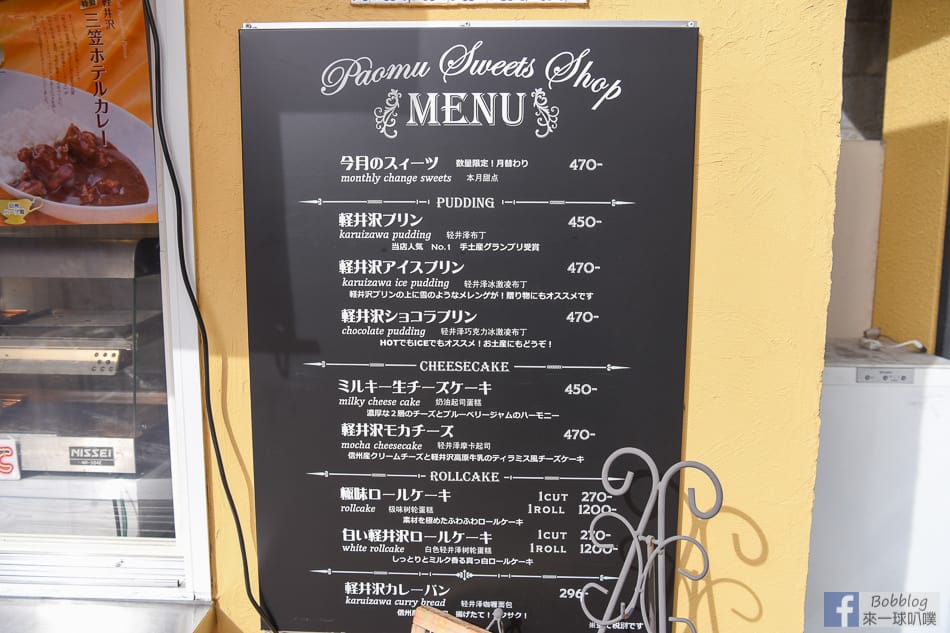 軽井沢
三笠ホテルカレー
Paomu Sweets Shop
MENU
今月のスィーツ 数量限定！月替わり 470-
monthly change sweets 本月甜点
PUDDING
軽井沢プリン 450-
karuizawa pudding 轻井泽布丁
当店人気 No.1 手土産グランプリ受賞
軽井沢アイスプリン 470-
karuizawa ice pudding 轻井泽冰激凌布丁
軽井沢プリンの上に雪のようなメレンゲが！贈り物にもオススメです
軽井沢ショコラプリン 470-
chocolate pudding 轻井泽巧克力冰激凌布丁
HOTでもICEでもオススメ！お土産にもどうぞ！
CHEESECAKE
ミルキー生チーズケーキ 450-
milky cheese cake 奶油起司蛋糕
濃厚な２層のチーズとブルーベリージャムのハーモニー
軽井沢モカチーズ 470-
mocha cheesecake 轻井泽摩卡起司
信州産クリームチーズと軽井沢高原牛乳のティラミス風チーズケーキ
ROLLCAKE
極味ロールケーキ 1CUT 270-
rollcake 极味树轮蛋糕 1ROLL 1200-
素材を極めたふわふわロールケーキ
白い軽井沢ロールケーキ 1CUT 270-
white rollcake 白色轻井泽树轮蛋糕 1ROLL 1200-
しっとりとミルク香る真っ白ロールケーキ
軽井沢カレーパン 296-
karuizawa curry bread 轻井泽咖喱面包
信州産 揚げたて！ サク！
税別です
NISSEI
Bobblog
來一球叭噗